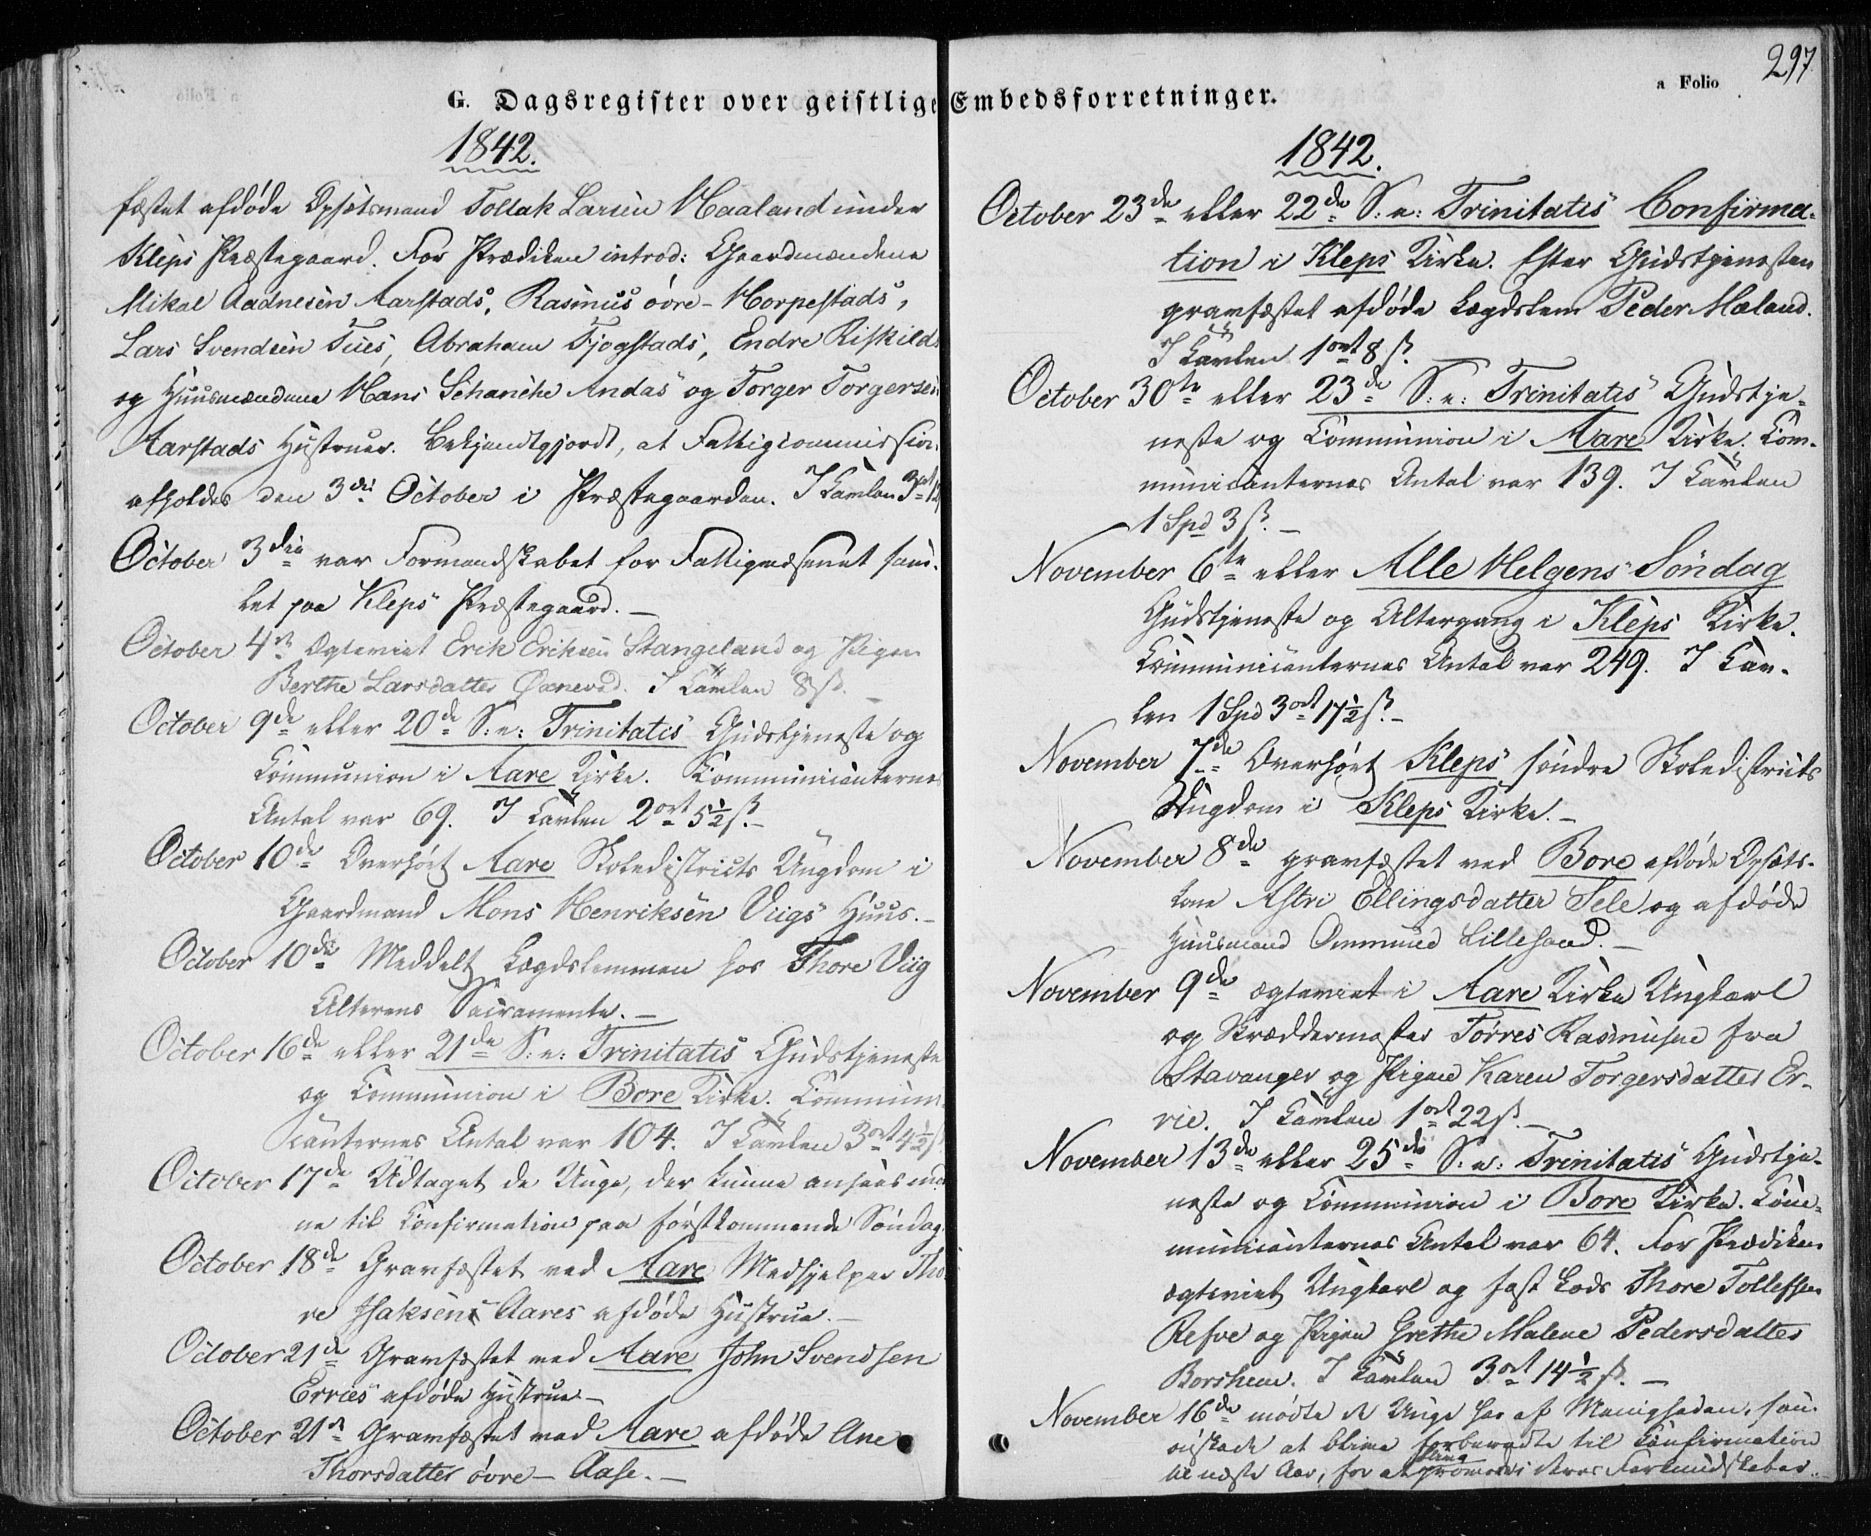 G. Dagsregister over geistlige Embedsforretninger.
1842.
fæstet afdøde Opsitsmand Tollak Larsen Haaland under
Kleps Præstegaard. For Prædiken introd: Gaardmændene
Mikal Aadnesen Aarstads, Rasmus övre-Horpestads,
Lars Svendsen Tues, Abraham Fjogstads, Endre Riskilds
og Huusmændene Hans Schanche Andas og Torger Torgersen
Aarstads Hustruer. Bekjendtgjordt, at Fattigcommission
afholdes den 3die October i Præstegaarden. I Tavlen 3ort
October 3die var Formandskabet for Fattigvæsenet sam-
let paa Kleps Præstegaard. —
October 4 Ægteviet Erik Eriksen Stangeland og Pigen
Berthe Larsdatter Öxnevad. I Tavlen 8ß. —
October 9de eller 20de S: e: Trinitatis Gudstjeneste og
Communion i Aare Kirke. Communicanternes
Antal var 69. I Tavlen 2ort 5½ß.—
October 10de Overhört Aare Skoledistricts Ungdom i
Gaardmand Mons Henriksen Viigs Huus. —
October 10de Meddelt Lægdslemmen hos Thore Viig
Alterens Sacramente. —
October 16de eller 21de S: e: Trinitatis Gudstjeneste
og Communion i Bore Kirke. Commun-
icanternes Antal var 104. I Tavlen 3ort 4½ß
October 17de Udtaget de Unge, der kunne ansees mod-
ne til Confirmation paa förstkommende Söndag.
October 18de Gravfæstet ved Aare Medhjelper Tho-
re Isaksen Aares afdøde Hustrue. —
October 21de Gravfæstet ved Aare John Svendsen
Ervies afdøde Hustrue —
October 21 Gravfæstet ved Aare afdøde Ane
Thorsdatter övre-Aase. —
a Folio 297
1842.
October 23de eller 22de S: e: Trinitatis Confirma-
tion i Kleps Kirke. Efter Gudstjenesten
gravfæstet afdøde Lægdslem Peder Mæland.
I Tavlen 1ort 8ß.
October 30te eller 23de S: e: Trinitatis Gudstje-
neste og Communion i Aare Kirke. Com-
municanternes Antal var 139. I Tavlen
1 Spd 3ß. —
November 6te eller Alle Helgens Söndag
Gudstjeneste og Altergang i Kleps Kirke.
Communicanternes Antal var 249. I Tav-
len 1 Spd 3ort 17½ß.—
November 7de Overhört Kleps söndre Skoledistricts
Ungdom i Kleps Kirke. —
November 8de gravfæstet ved Bore afdøde Opsits-
kone Astri Ellingsdatter Sele og afdøde
Huusmand Ommund Lillesand. —
November 9de ægteviet i Aare Kirke Ungkarl
og Skræddermester Törres Rasmusen fra
Stavanger og Pigen Karen Torgersdatter Er-
vie. I Tavlen 1ort 22ß. —
November 13de eller 25de S: e: Trinitatis Gudstje-
neste og Communion i Bore Kirke. Com-
municanternes Antal var 64. For Prædiken
ægteviet Ungkarl og fast Lods Thore Tollefsen
Refve og Pigen Grethe Malene Pedersdatter
Borsheim. I Tavlen 3ort 14½ß. —
November 16de mödte de Unge her af Menigheden, som
önskede at blive forberedte til Confirmation
til næste Aar, for at blive prövede i deres Forkundskaber.